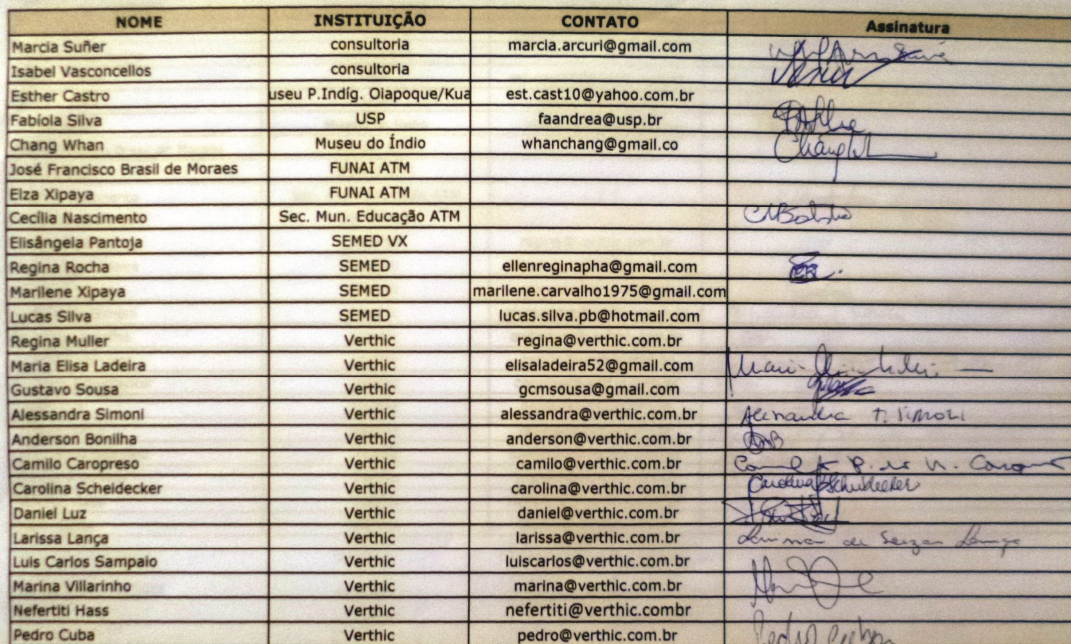 NOME INSTITUIÇÃO CONTATO Assinatura
Marcia Suñer consultoria marcia.arcuri@gmail.com
Isabel Vasconcellos consultoria
Esther Castro useu P.Indíg. Oiapoque/Kua est.cast10@yahoo.com.br
Fabíola Silva USP faandrea@usp.br
Chang Whan Museu do Índio whanchang@gmail.co
José Francisco Brasil de Moraes FUNAI ATM
Elza Xipaya FUNAI ATM
Cecília Nascimento Sec. Mun. Educação ATM
Elisângela Pantoja SEMED VX
Regina Rocha SEMED ellenreginapha@gmail.com
Marilene Xipaya SEMED marilene.carvalho1975@gmail.com
Lucas Silva SEMED lucas.silva.pb@hotmail.com
Regina Muller Verthic regina@verthic.com.br
Maria Elisa Ladeira Verthic elisaladeira52@gmail.com
Gustavo Sousa Verthic gcmsousa@gmail.com
Alessandra Simoni Verthic alessandra@verthic.com.br
Anderson Bonilha Verthic anderson@verthic.com.br
Camilo Caropreso Verthic camilo@verthic.com.br
Carolina Scheidecker Verthic carolina@verthic.com.br
Daniel Luz Verthic daniel@verthic.com.br
Larissa Lança Verthic larissa@verthic.com.br
Luis Carlos Sampaio Verthic luiscarlos@verthic.com.br
Marina Villarinho Verthic marina@verthic.com.br
Nefertiti Hass Verthic nefertiti@verthic.combr
Pedro Cuba Verthic pedro@verthic.com.br